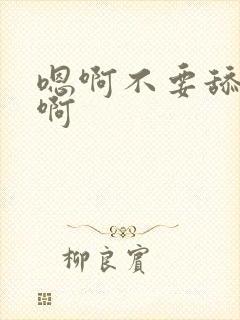 嗯啊不要舔
啊
柳良宾